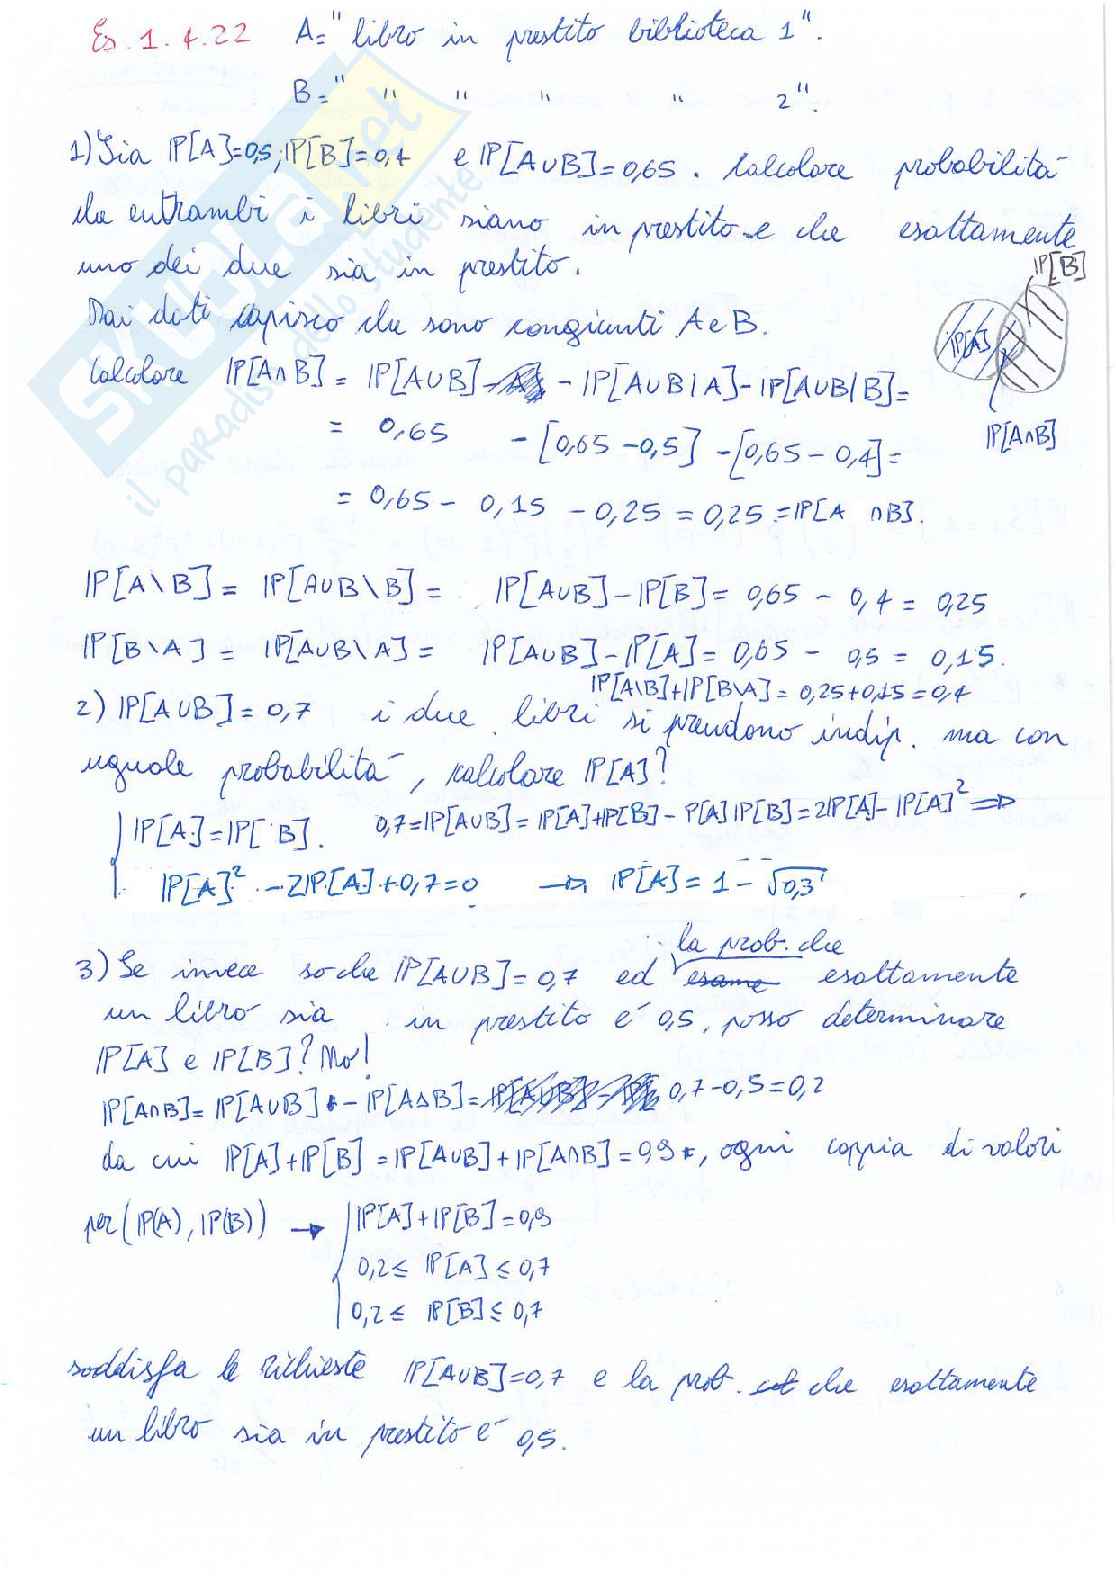 Es. 1.4.22 A="libro in prestito biblioteca 1".
B=" " " " " 2".
1) Sia IP[A]=0,5; IP[B]=0,4 e IP[A∪B]=0,65. Calcolare probabilità
che entrambi i libri siano in prestito e che esattamente
uno dei due sia in prestito.
IP[B]
Dai dati capisco che sono congiunti A e B.
IP[A]
Calcolare IP[A∩B] = IP[A∪B] - IP[A∪B|A] - IP[A∪B|B]=
= 0,65 - [0,65-0,5] - [0,65-0,4]=
IP[A∩B]
= 0,65 - 0,15 - 0,25 = 0,25 = IP[A ∩B].
IP[A\B] = IP[A∪B\B] = IP[A∪B]-IP[B] = 0,65 - 0,4 = 0,25
IP[B\A] = IP[A∪B\A] = IP[A∪B]-IP[A] = 0,65 - 0,5 = 0,15.
IP[A\B]+IP[B\A] = 0,25+0,15=0,4
2) IP[A∪B]=0,7 i due libri si prendono indip. ma con
uguale probabilità, calcolare IP[A]?
IP[A]=IP[B]. 0,7=IP[A∪B]=IP[A]+IP[B]-P[A]IP[B]=2IP[A]-IP[A]² ⇒
IP[A]²-2IP[A]+0,7=0 → IP[A]=1-√0,3
la prob. che
3) Se invece so che IP[A∪B]=0,7 ed esame esattamente
un libro sia in prestito é 0,5, posso determinare
IP[A] e IP[B]? No!
IP[A∩B]=IP[A∪B]-IP[A△B]= 0,7-0,5=0,2
da cui IP[A]+IP[B]=IP[A∪B]+IP[A∩B]=0,9, ogni coppia di valori
per (IP(A), IP(B)) → IP[A]+IP[B]=0,9
0,2≤ IP[A] ≤0,7
0,2≤ IP[B]≤ 0,7
soddisfa le richieste IP[A∪B]=0,7 e la prob. che esattamente
un libro sia in prestito é 0,5.
SKUOLA.net
il paradiso dello studente